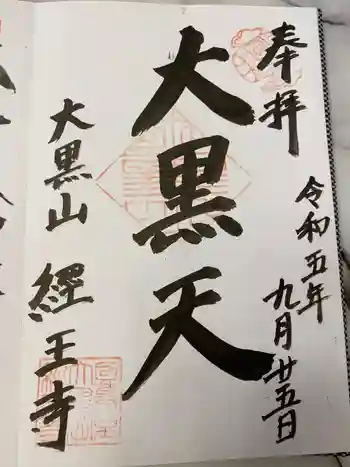 奉拝
令和五年
九月廿五日
大黒天
大黒山
經王寺